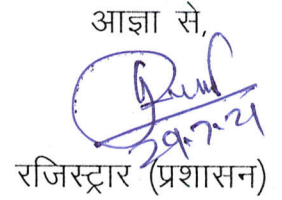 आज्ञा से,
29.7.21
रजिस्ट्रार (प्रशासन)